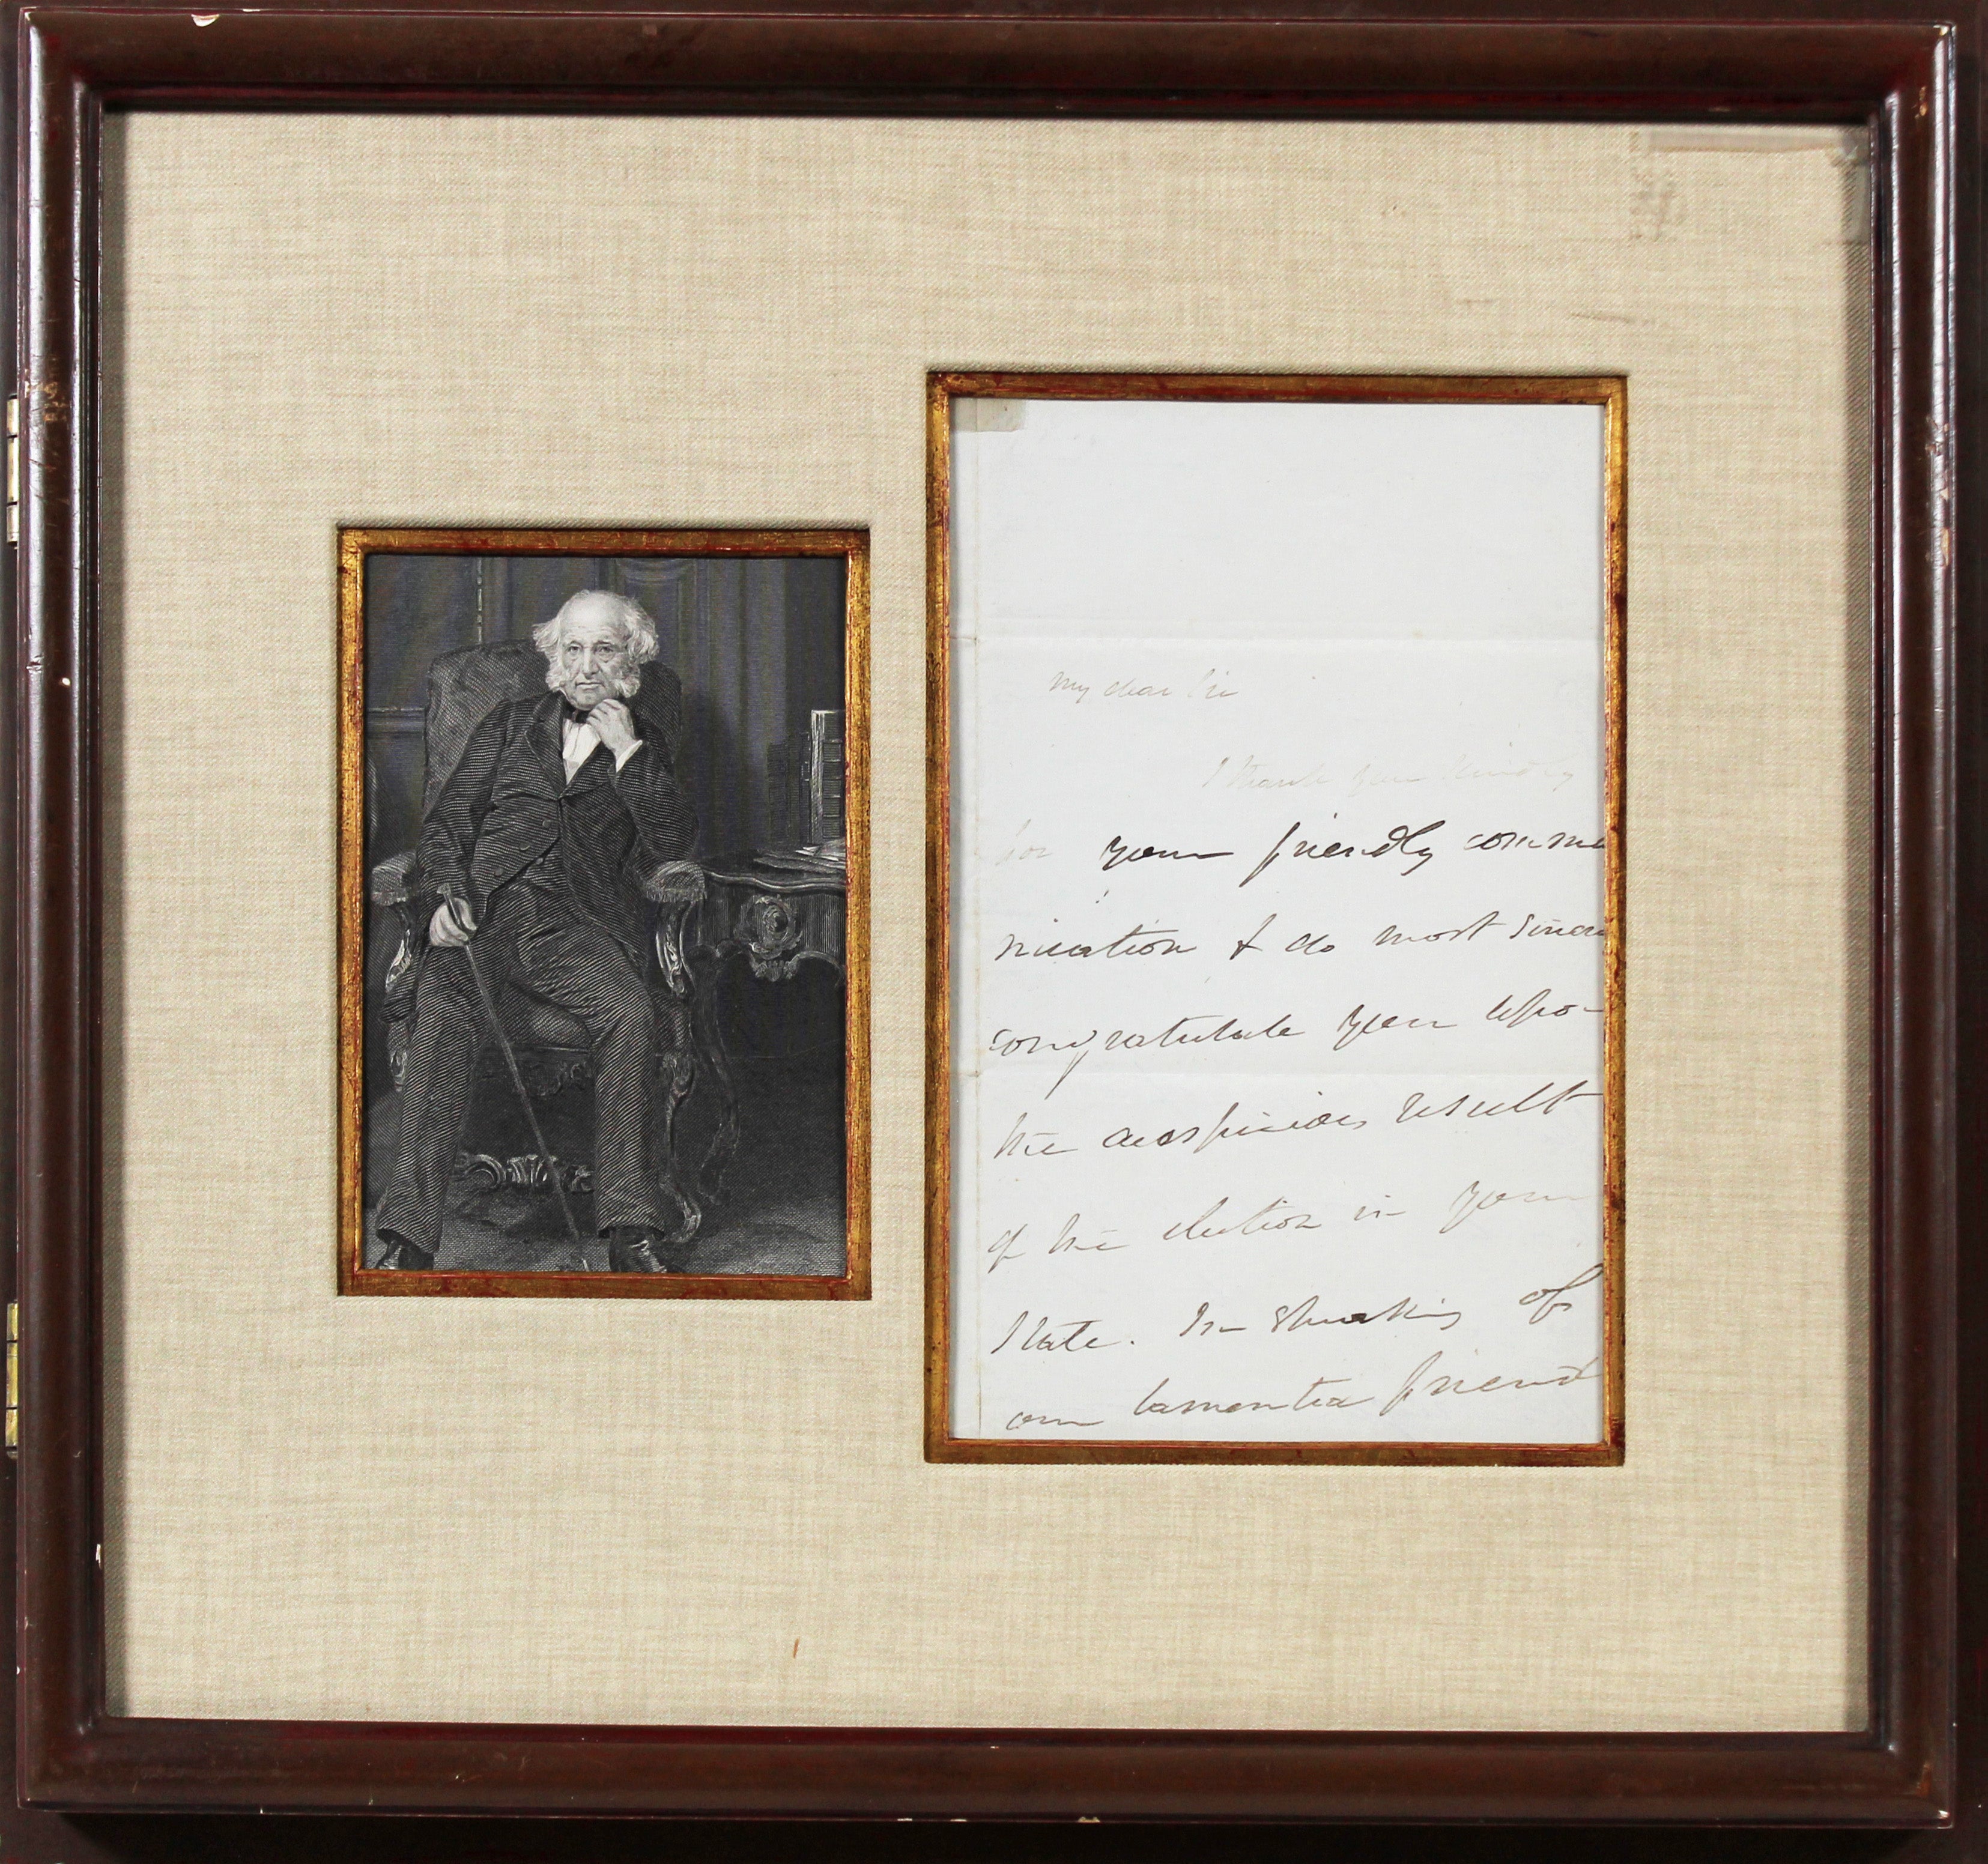 My dear Sir
I thank you kindly
for your friendly commu
nication & do most sincere
congratulate you upon
the auspicious result
of the election in your
State. In speaking of
our lamented friend